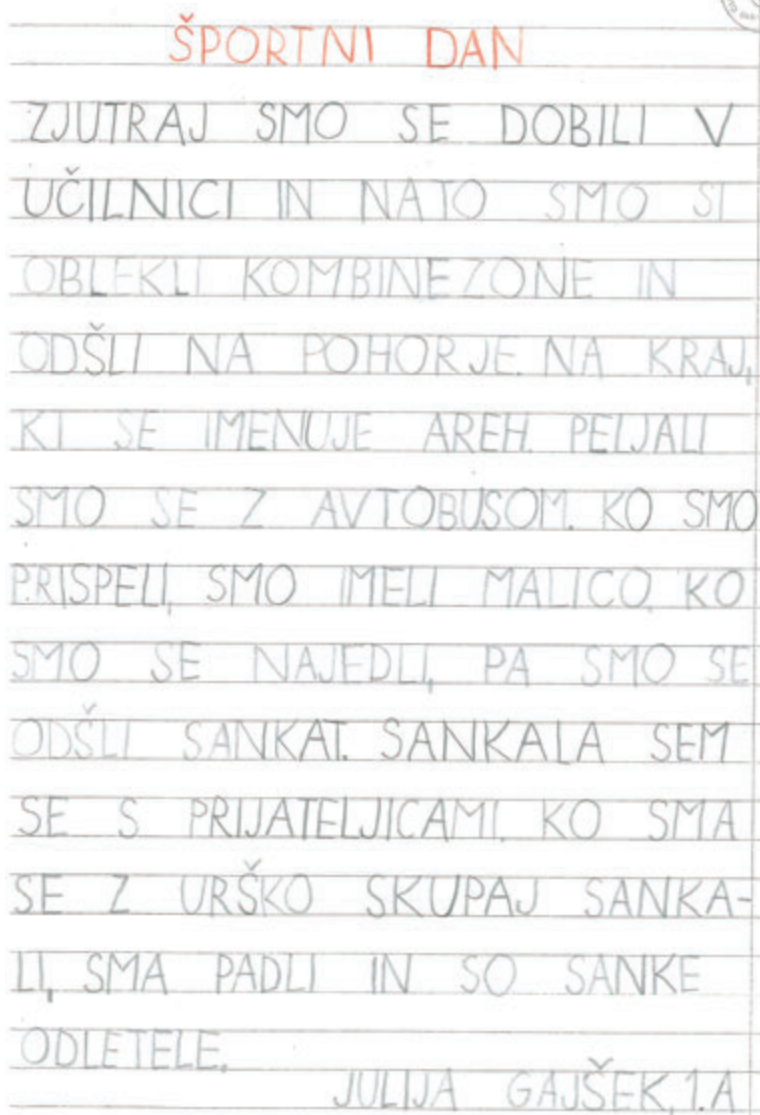 ŠPORTNI DAN
ZJUTRAJ SMO SE DOBILI V
UČILNICI IN NATO SMO SI
OBLEKLI KOMBINEZONE IN
ODŠLI NA POHORJE NA KRAJ,
KI SE IMENUJE AREH. PELJALI
SMO SE Z AVTOBUSOM. KO SMO
PRISPELI, SMO IMELI MALICO. KO
SMO SE NAJEDLI, PA SMO SE
ODŠLI SANKAT. SANKALA SEM
SE S PRIJATELJICAMI. KO SMA
SE Z URŠKO SKUPAJ SANKA-
LI, SMA PADLI IN SO SANKE
ODLETELE.
JULIJA GAJŠEK, 1.A